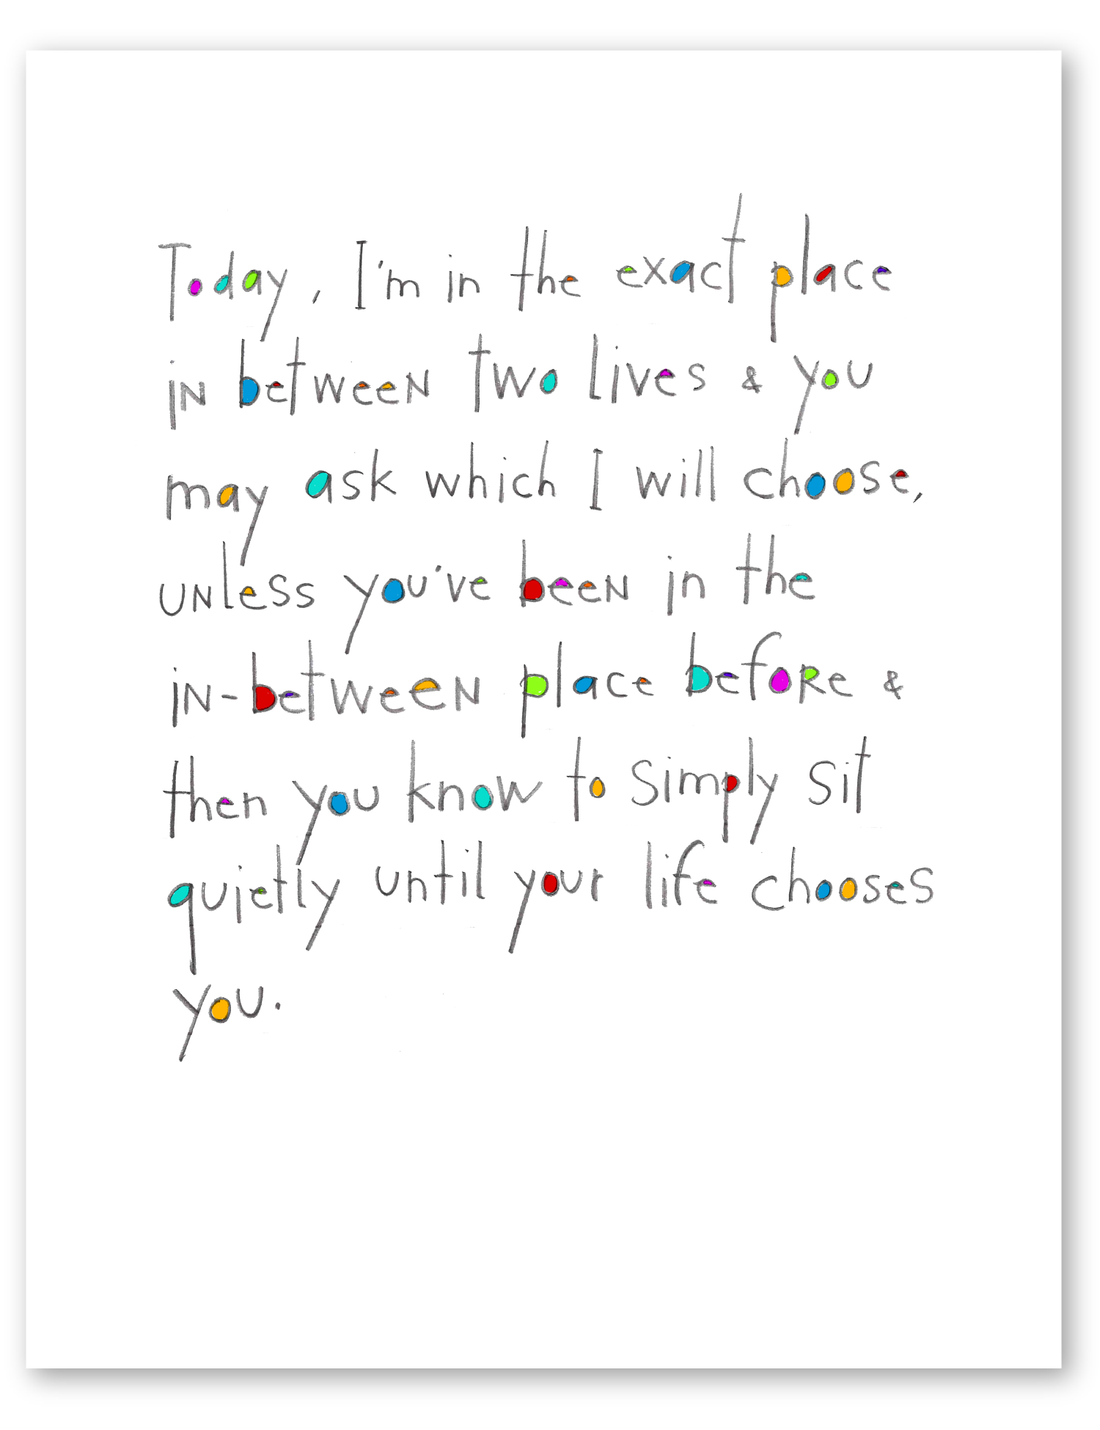 Today, I'm in the exact place
iN between two lives & you
may ask which I will choose,
unless you've been in the
iN-between place before &
then you know to simply sit
quietly until your life chooses
you.